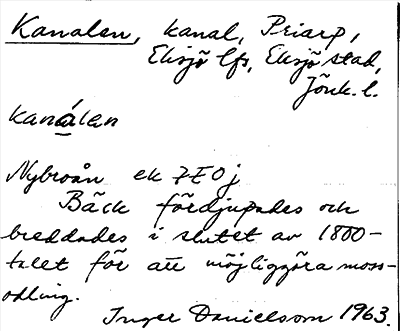 Kanalen, kanal, Priarp,
Eksjö lfs, Eksjö stad,
Jönk. l.
kanálen
Nybroån ek 7E0j
Bäck fördjupades och
breddades i slutet av 1800-
talet för att möjliggöra moss-
odling.
Inger Danielsson 1963.